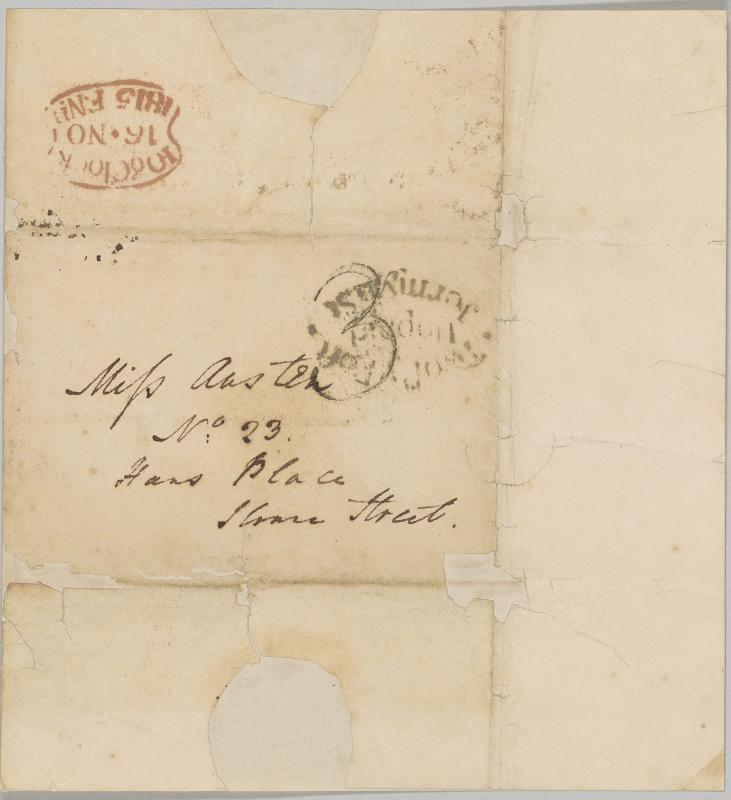 10 o'Clock
16 • NO
1815 F.Nn
3
Two
Unpaid
Jermyn St
Miss Austen
No. 23.
Hans Place
Sloane Street.